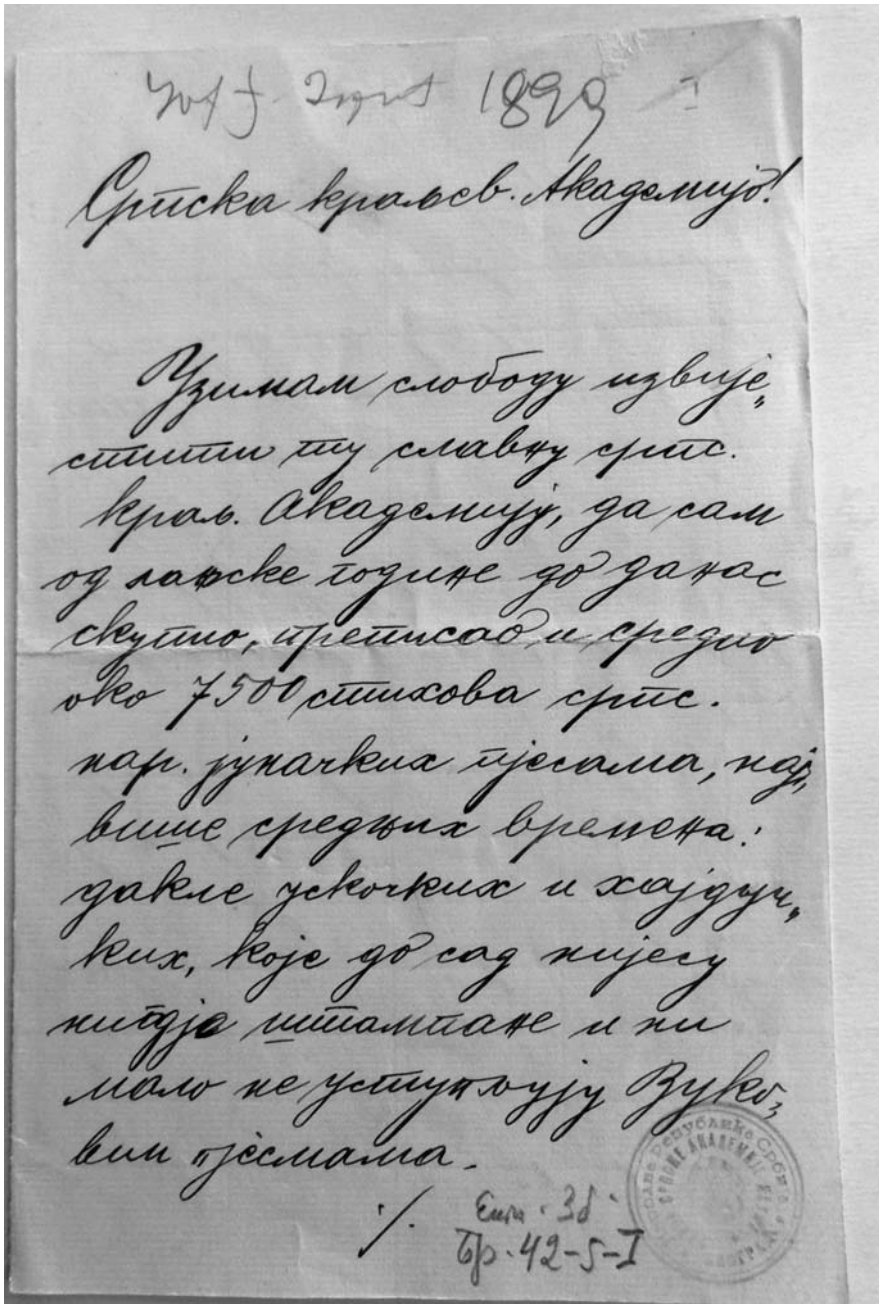 1899
Српска краљев. Академијо!
Узимам слободу извије„
стити ту славну српс.
краљ. Академију, да сам
од ланске године до данас
скупио, преписао и средио
око 7500 стихова српс.
нар. јуначких пјесама, нај„
више средњих времена:
дакле ускочких и хајдуч„
ких, које до сад нијесу
нигдје штампане и ни
мало не уступљују Вуко„
вим пјесмама.
·/.
Бр. 42-5-I